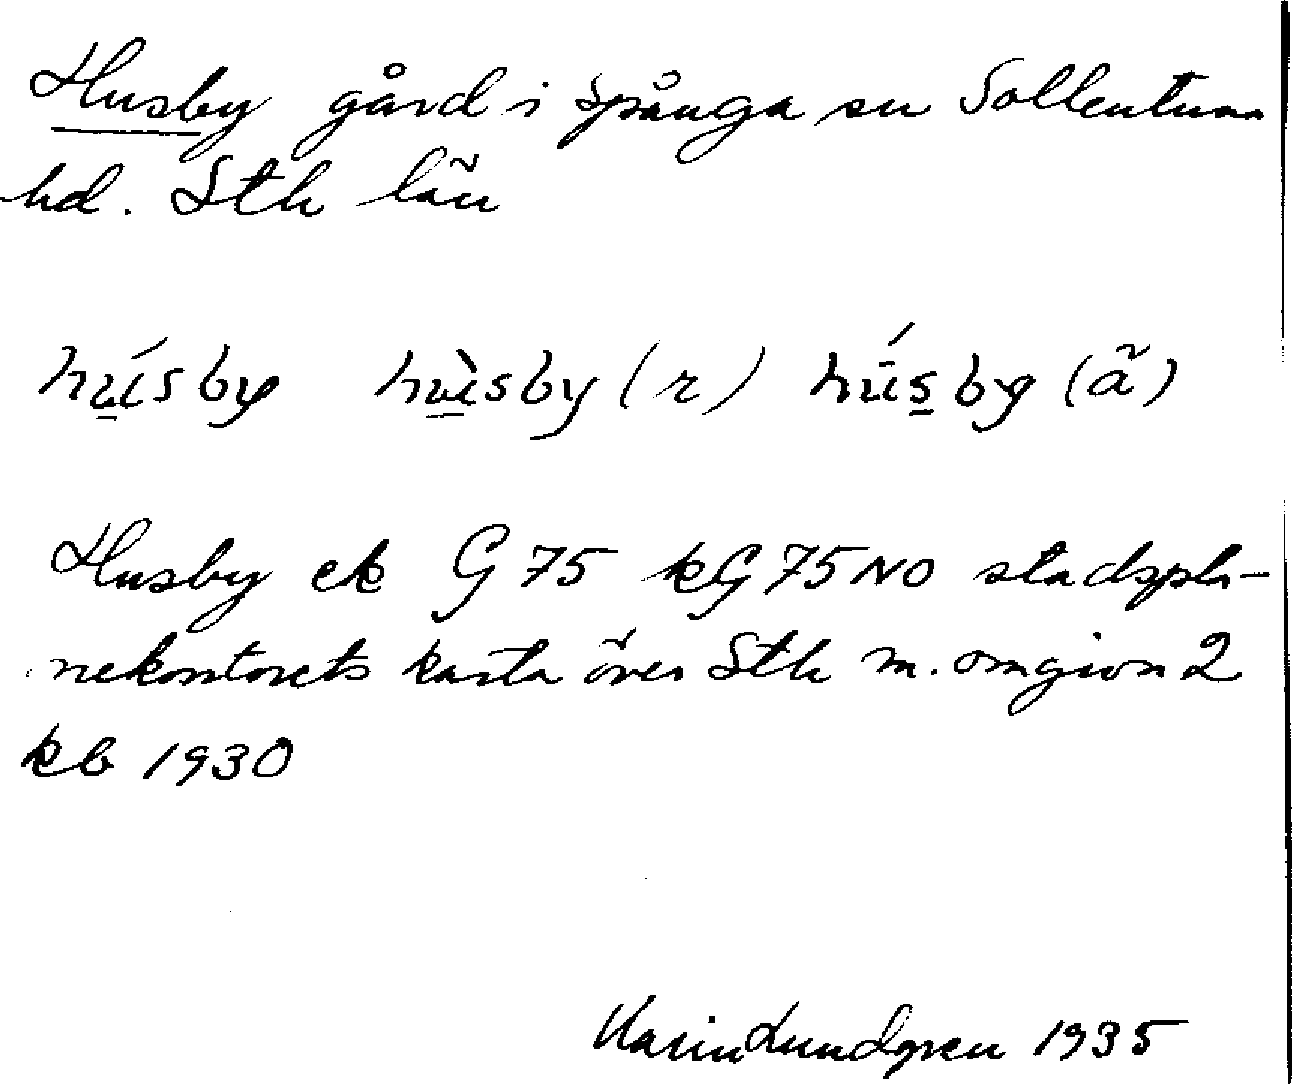 Husby gård i Spånga sn Sollentuna
hd. Sth län
hú̲sby hù̲sby (r) hū́s̲by (ã)
Husby ek G 75 kG 75 NO stadspla-
nekontorets karta över Sth m. omgivn 2
kb 1930
Karin Lundgren 1935